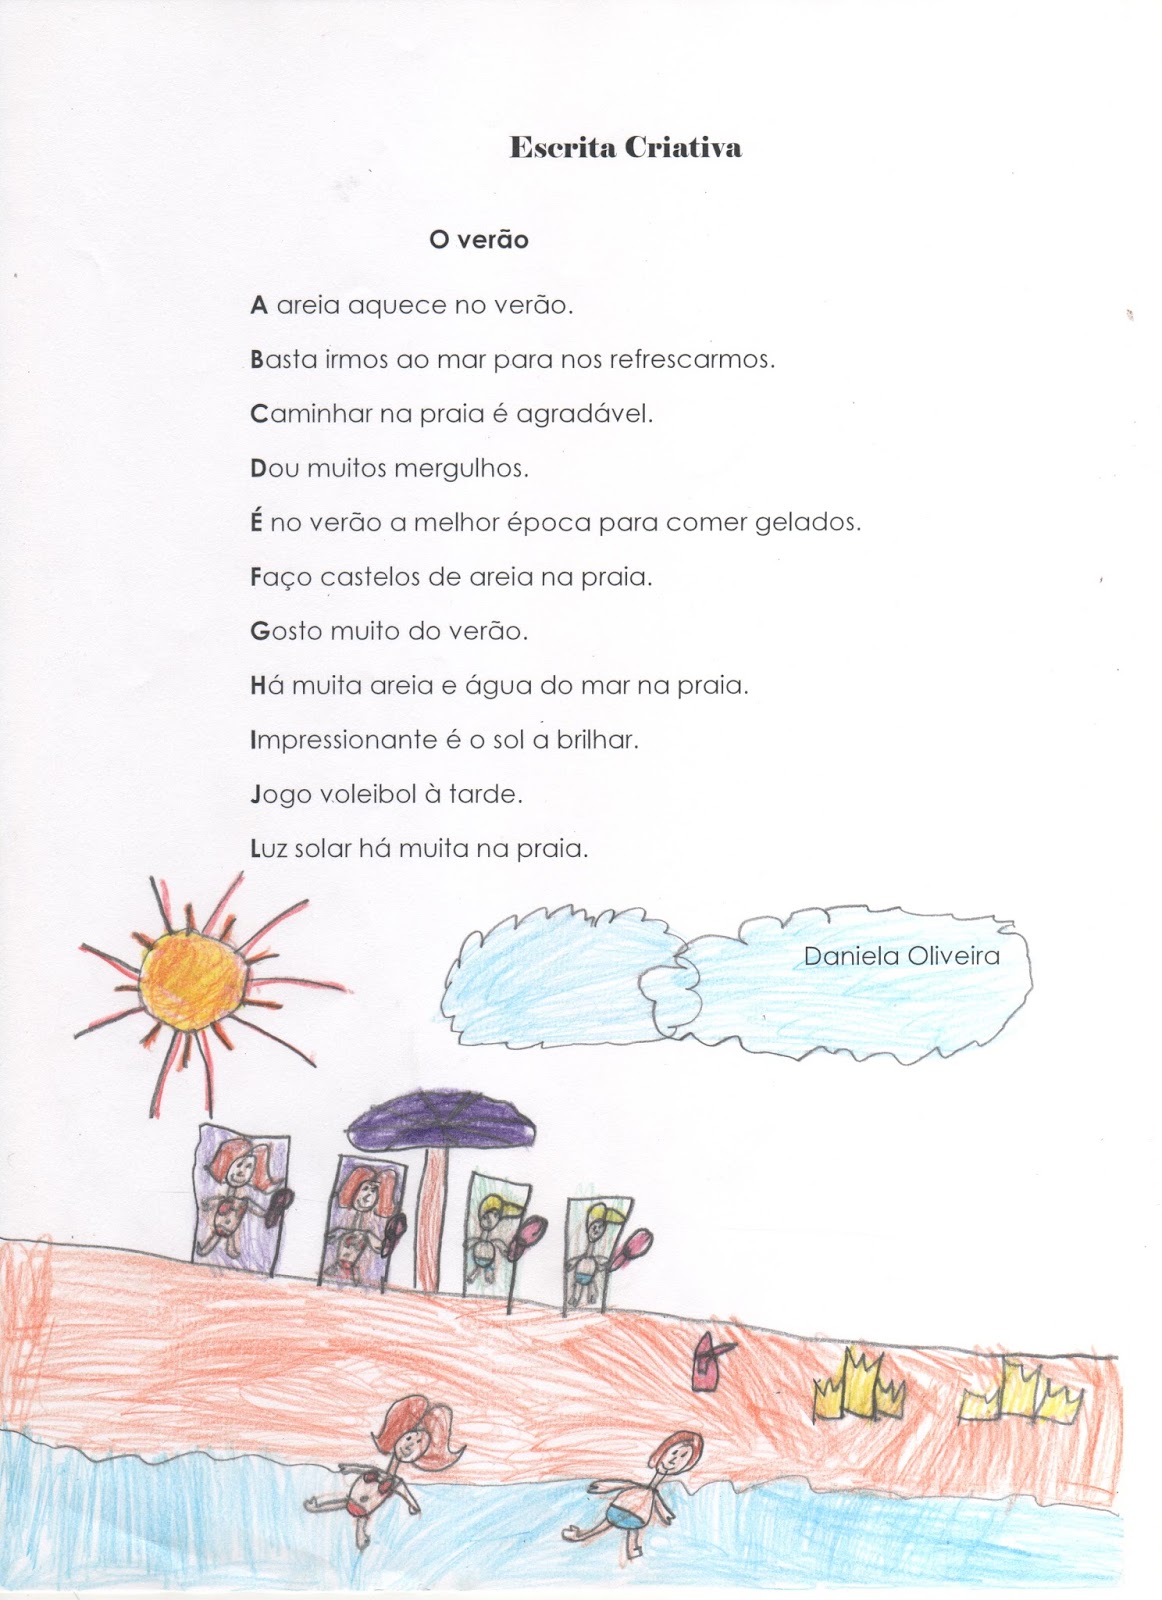 Escrita Criativa
O verão
A areia aquece no verão.
Basta irmos ao mar para nos refrescarmos.
Caminhar na praia é agradável.
Dou muitos mergulhos.
É no verão a melhor época para comer gelados.
Faço castelos de areia na praia.
Gosto muito do verão.
Há muita areia e água do mar na praia.
Impressionante é o sol a brilhar.
Jogo voleibol à tarde.
Luz solar há muita na praia.
Daniela Oliveira